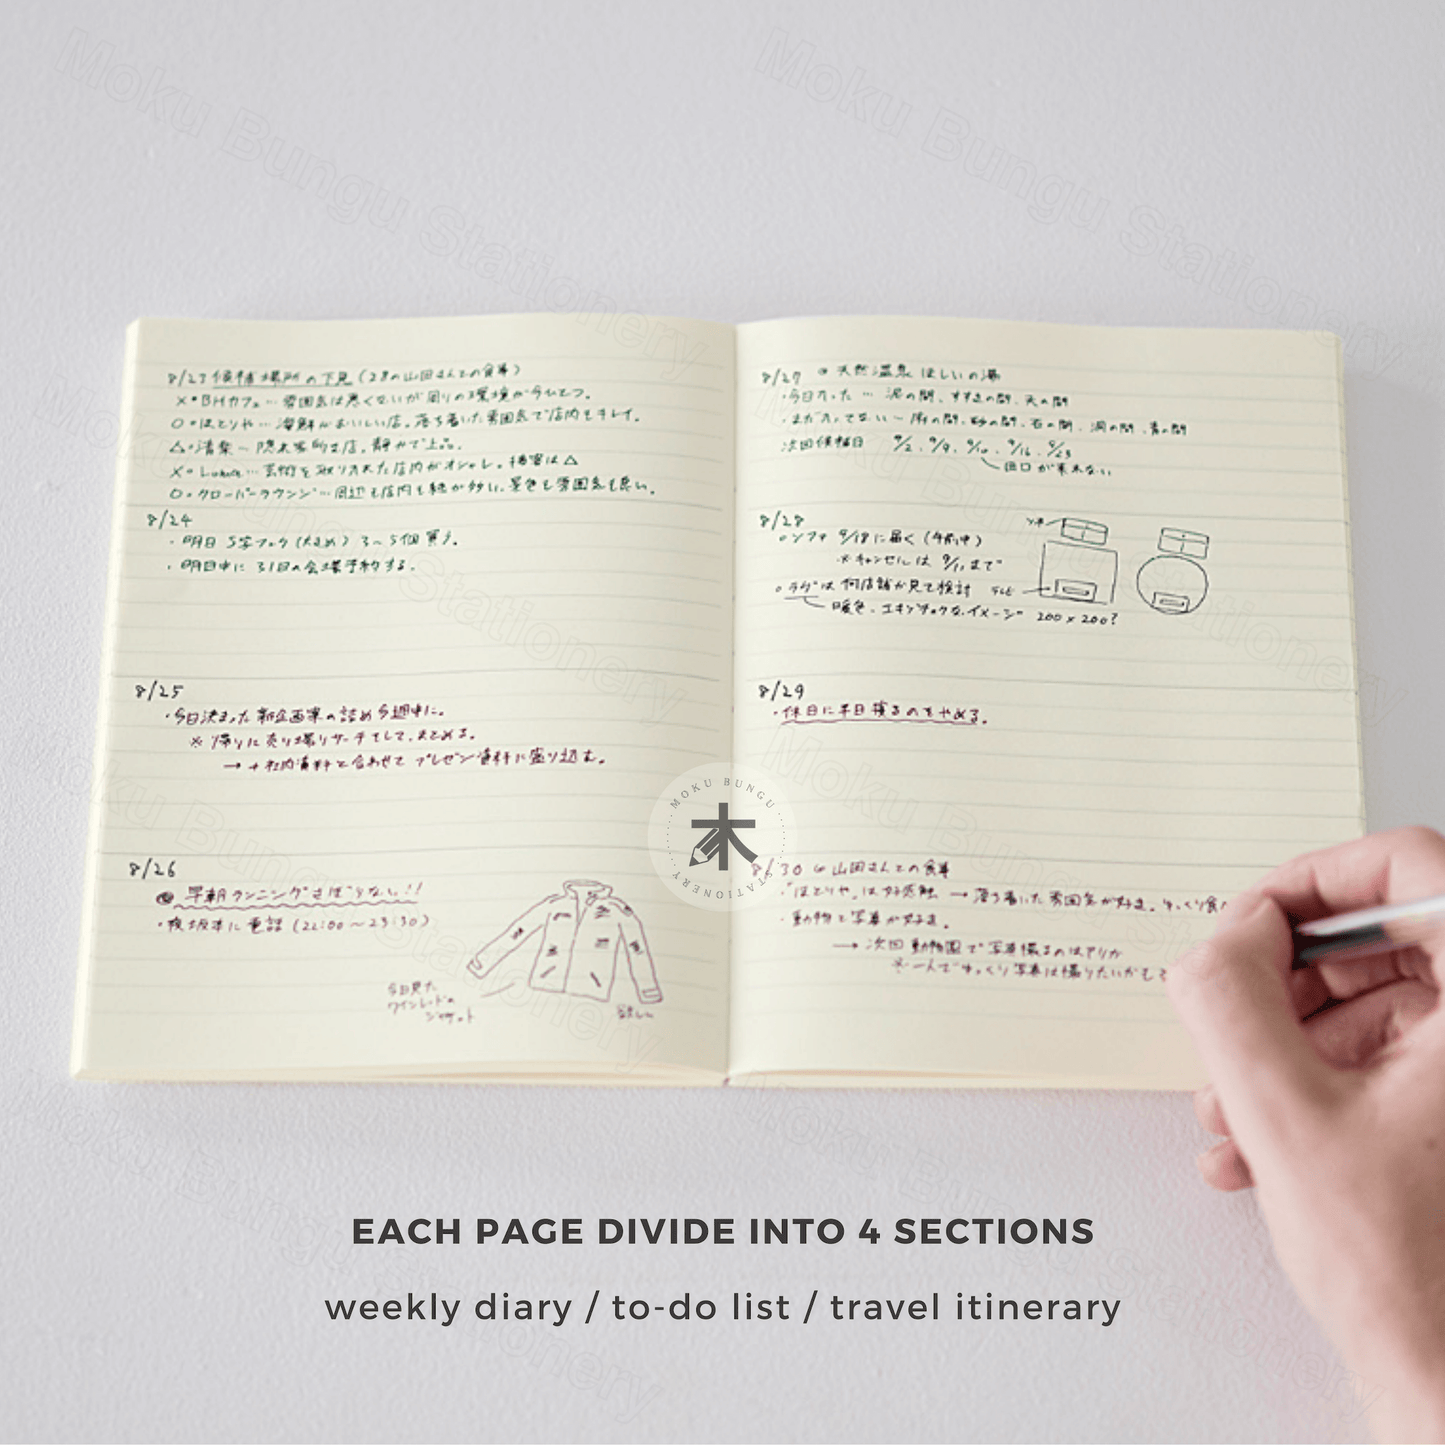 8/23 候補場所の下見 (28の山田さんとの食事)
×・BHカフェ… 雰囲気は悪くないが周りの環境が今ひとつ。
○・ほとりや… 海鮮がおいしい店。落ち着いた雰囲気で店内もキレイ。
△・清楽〜 隠れ家的な店。静かで上品。
×・ … 芸術を取り入れた店内がオシャレ。接客は△
○・クローバーラウンジ… 周辺も店内も緑が多い。景色も雰囲気も良い。
8/24
・明日 S字フック(大きめ) 3〜5個買う。
・明日中に 31日の会場予約する。
8/25
・今日決まった新企画案の詰め今週中に。
※ 帰りに売り場リサーチをして、まとめる。
→ +社内資料と合わせて プレゼン資料に盛り込む。
8/26
早朝ランニングさぼらない!!
・夜坂本に電話 (22:00〜23:30)
今日見た
ワインレッドの
ジャケット
欲しい
8/27 天然温泉 ほしいの湯
・今日入った … 泥の間、すすきの間、天の間
・まだ入ってない〜 の間、砂の間、石の間、洞の間、青の間
次回候補日 9/2、9/9、9/10、9/16、9/23
田口が来れない
8/28
ソファ 9/18に届く (午前中)
※キャンセルは 9/11まで
ラグは何店舗か見て検討
暖色、エキゾチックなイメージ 200×200?
ソファ
テレビ
8/29
・休日に半日寝るのをやめる。
8/30 山田さんとの食事
・「ほとりや」は好感触 → 落ち着いた雰囲気が好き。ゆっくり食
・動物と写真が好き。
→ 次回 動物園で写真撮るのはアリか
※一人でゆっくり写真は撮りたいかも
MOKU BUNGU
木
STATIONERY
EACH PAGE DIVIDE INTO 4 SECTIONS
weekly diary / to-do list / travel itinerary
Moku Bungu Stationery